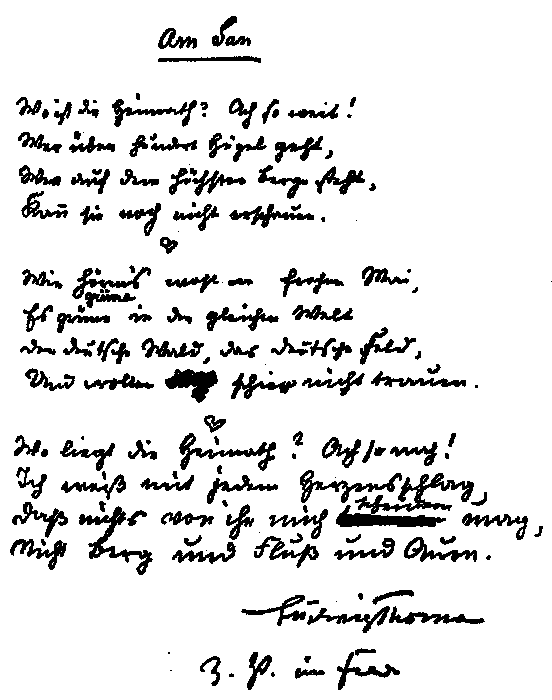 Am San
Wo ist die Heimath? Ach so weit!
Wer über hundert Hügel geht,
Wer auf dem höchsten Berge steht,
Kan̄ sie noch nicht erschauen.
Wir hören's wohl im frohen Mai,
grüne
Es grüne in der gleichen Welt
der deutsche Wald, das deutsche Feld,
Und wollen schier nicht trauen.
Wo liegt die Heimath? Ach so nah!
Ich weiß mit jedem Herzensschlag,
daß nichts von ihr mich scheiden mag,
Nicht Berg und Fluß und Auen.
Ludwig Thoma
z. Zt. im Feld